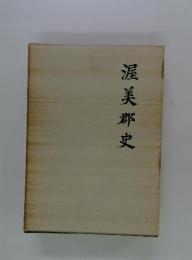 渥美郡史